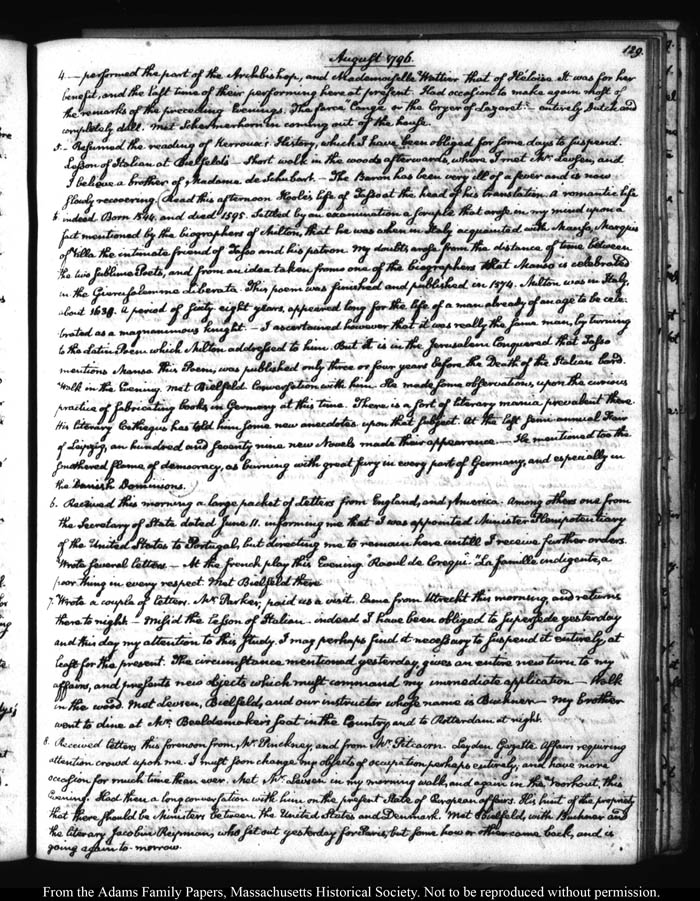 129.
August 1796.
4. — performed the part of the Archbishop, and Mademoiselle Wattier that of Heloise. It was for her
benefit, and the last time of their performing here at present. Had occasion to make again most of
the remarks of the preceding Evenings. The farce, "Congé or the of Lazaret: — entirely Dutch and
completely dull. Met Schermerhorn in coming out of the house.
5. — Resumed the reading of Kerroux's History, which I have been obliged for some days to suspend.
Lesson of Italian at Bielfeld's — Short walk in the woods afterwards, where I met Mr. Levsen, and
I believe a brother of Madame de Schubart. — The Baron has been very ill of a fever and is now
slowly recovering. Read this afternoon Hoole's life of Tasso at the head of his translation. A romantic life
indeed. Born 1544, and died 1595. Settled by an examination a scruple that arose in my mind upon a
fact mentioned by the biographers of Milton, that he was when in Italy acquainted with Manso, Marquis
of Villa the intimate friend of Tasso and his patron. My doubts arose from the distance of time between
the two sublime Poets, and from an idea taken from one of the biographers that Manso is celebrated
in the Gierusalemme liberata. This poem was finished and published in 1574. Milton was in Italy,
about 1638. A period of sixty eight years, appeared long for the life of a man already of an age to be cele-
brated as a magnanimous knight — I ascertained however that it was really the same man, by turning
to the Latin Poem which Milton addressed to him. But it is in the Jerusalem Conquered that Tasso
mentions Manso. This Poem, was published only three or four years before the Death of the Italian bard.
Walk in the Evening. Met Bielfeld. Conversation with him. He made some observations, upon the curious
practice of fabricating books in Germany at this time. There is a sort of literary mania prevalent there.
His literary has told him some new anecdotes upon that subject. At the last semi-annual Fair
of Leipzig, an hundred and seventy nine new Novels made their appearance. — He mentioned too the
smothered flame of democracy, as burning with great fury in every part of Germany, and especially in
the Danish Dominions.
6. Received this morning a large packet of Letters from England, and America. Among others one from
the Secretary of State dated June 11. informing me that I was appointed Minister Plenipotentiary
of the United States to Portugal, but directing me to remain here untill I receive further orders.
Wrote several Letters. — At the french play this Evening "Raoul de Crequi." "La famille indigente, a
poor thing in every respect. Met Bielfeld there
7. Wrote a couple of letters. Mr. Parker, paid us a visit. Came from Utrecht this morning, and returns
there to night — Miss'd the Lesson of Italian. indeed I have been obliged to supersede yesterday
and this day my attention to this study. I may perhaps find it necessary to suspend it entirely, at
least for the present. The circumstance mentioned yesterday, gives an entire new turn to my
affairs, and presents new objects which must command my immediate application — Walk
in the wood. Met Levsen, Bielfeld, and our instructor whose name is Buchner — My brother
went to dine at Mr. Beeldemaker's seat in the Country and to Rotterdam at night.
8. Received letters this forenoon from, Mr. Pinckney, and from Mr. Pitcairn. Leyden Gazette. Affairs requiring
attention crowd upon me. I must soon change my objects of occupation perhaps entirely, and have more
occasion for much time than ever. Met Mr. Levsen in my morning walk, and again in the Voorhout, this
Evening. Had then a long conversation with him on the present State of European affairs. His hint of the propriety
that there should be Ministers between the United States and Denmark. Met Bielfeld, with Buchner and
the literary Jacobin who set out yesterday for Paris, but some how or other came back, and is
going again to-morrow.
From the Adams Family Papers, Massachusetts Historical Society. Not to be reproduced without permission.